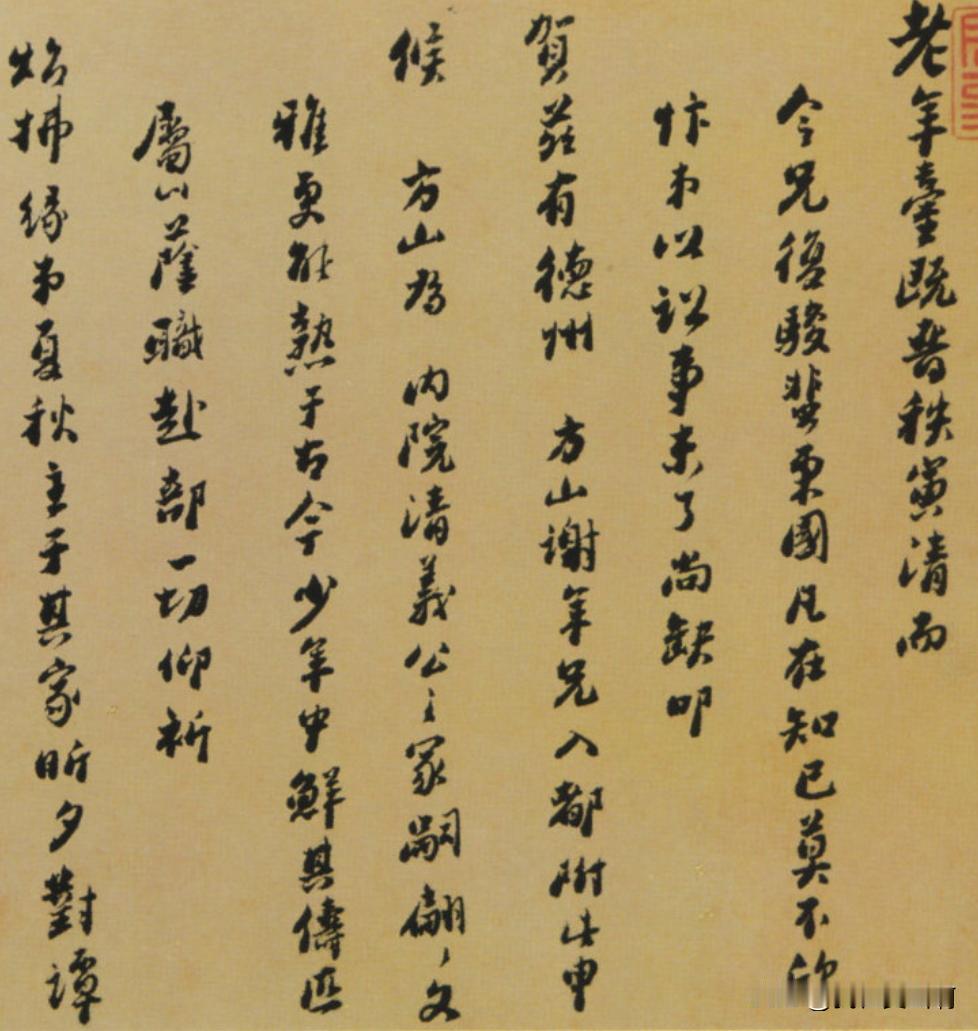 老年臺既晉秩寅清而
令兄復駿蜚東國凡在知已莫不欣
忭弟以訟事未了尚缺叩
賀茲有德州 方山謝年兄入都附此申
候 方山為 內院清義公之冢嗣翩翩文
雅更能熟于古今少年中鮮其儔匹
屬以蔭職赴部一切仰祈
炤拂緣弟夏秋主于其家昕夕對譚